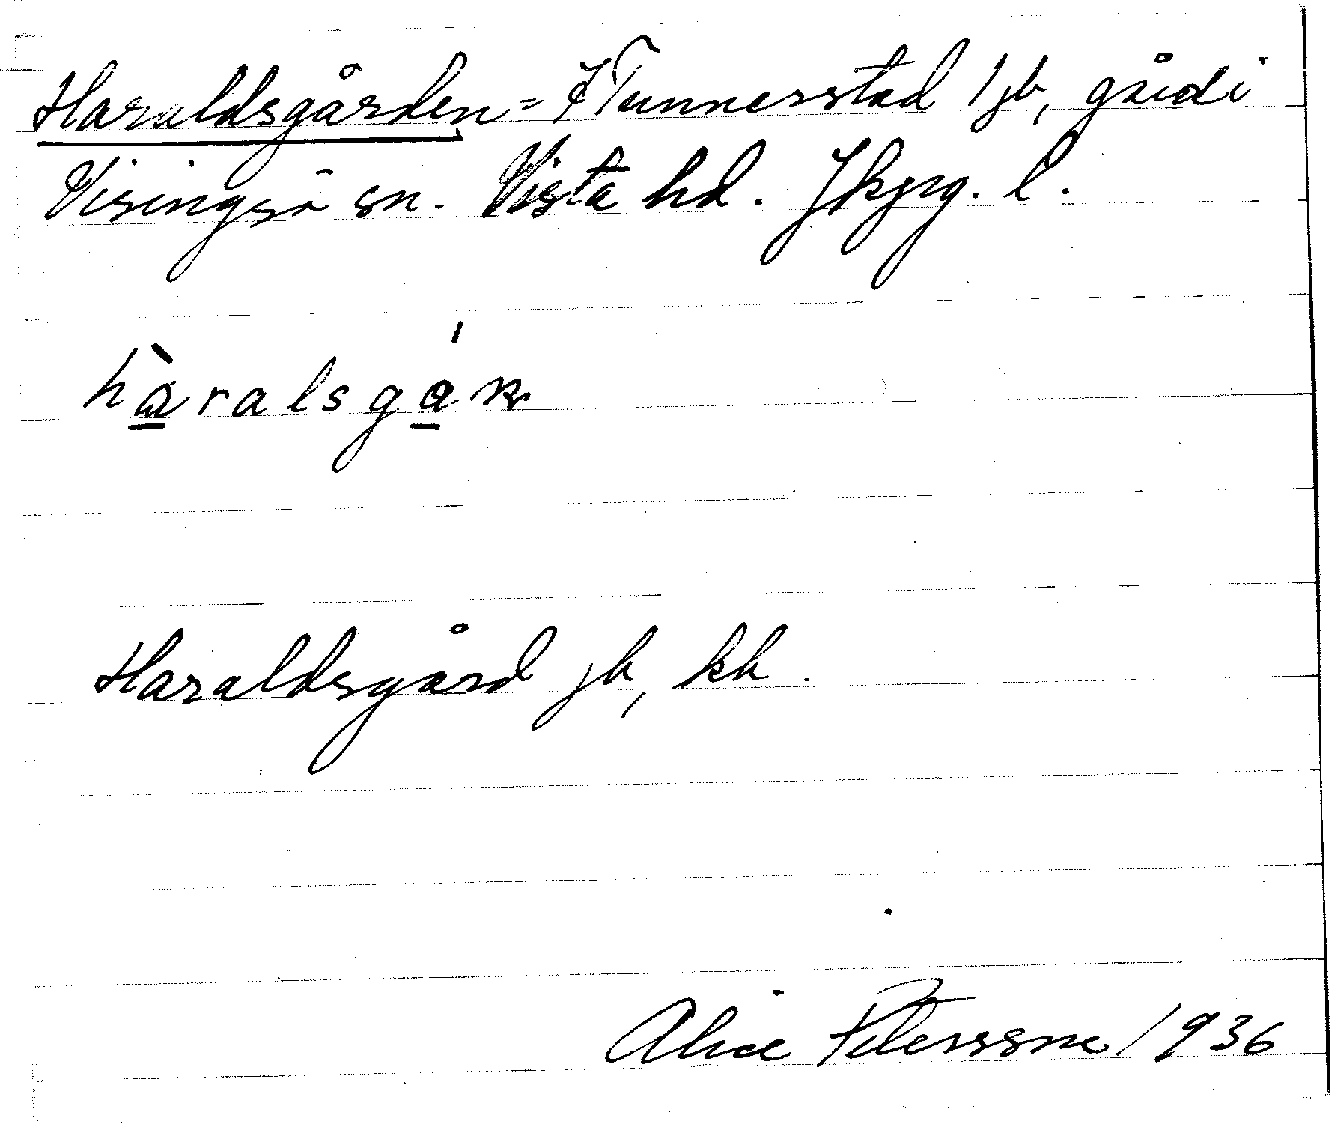 Haraldsgården = Tunnerstad 1 jb, gård i
Visingsö sn. Vista hd. Jkpg. l.
hàralsgá
Haraldsgård jb, kb.
Alice Peterssone 1936